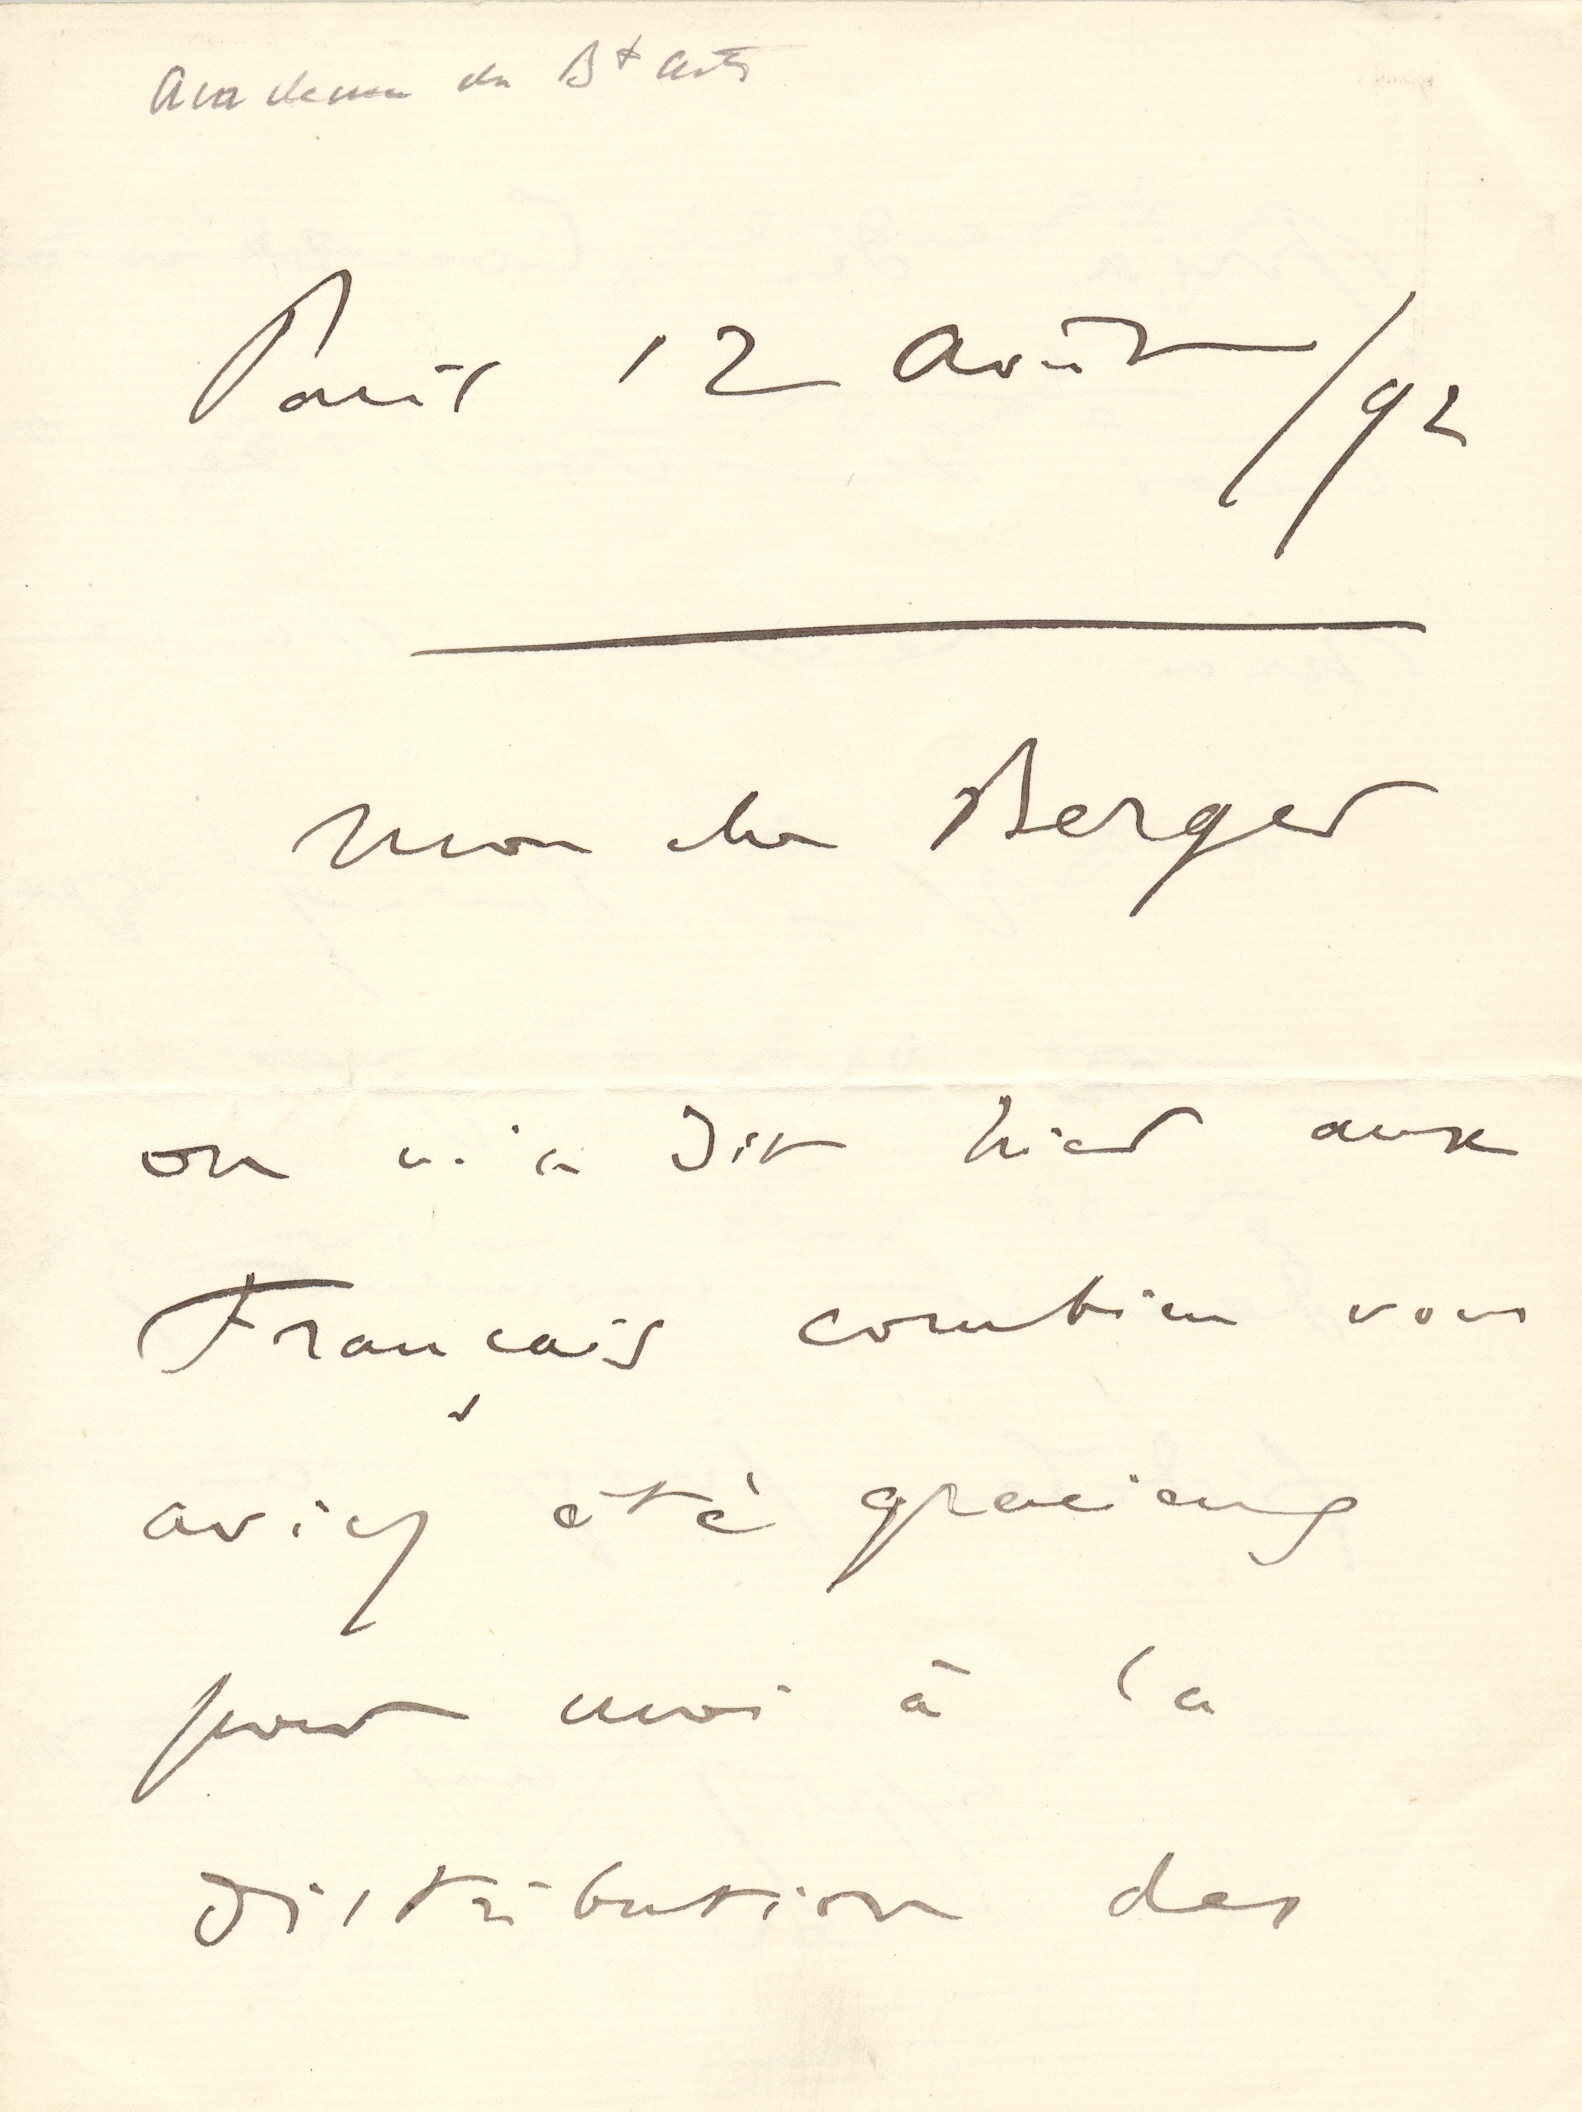 Academie des Bx arts
Paris 12 Août /92
Mon cher Berger
on m'a dit hier aux
Français combien vous
aviez été gracieux
pour moi à la
distribution des